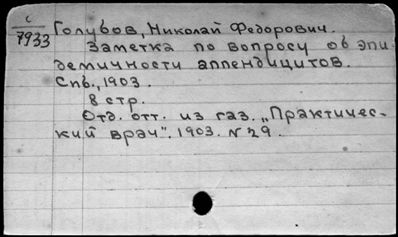 с
7933
Голубов, Николай Федорович.
Заметка по вопросу об эпи
демичности аппендицитов.
Спб., 1903.
8 стр.
Отд. отт. из газ. „Практичес-
кий врач". 1903. N 29.